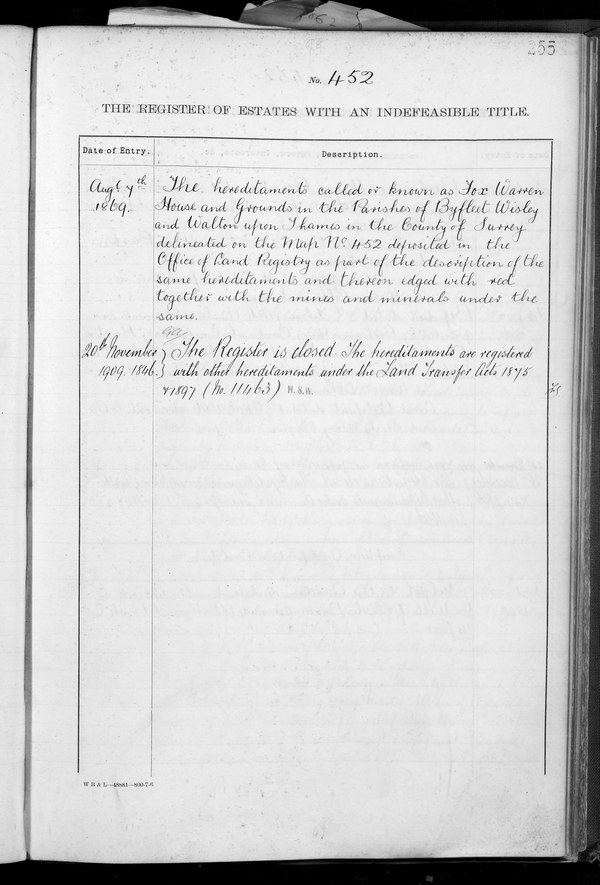 255
No. 452
THE REGISTER OF ESTATES WITH AN INDEFEASIBLE TITLE.
Date of Entry. Description.
Augt 7th The hereditaments called or known as Fox Warren
1869. House and Grounds in the Parishes of Byfleet Wisley
and Walton upon Thames in the County of Surrey
delineated on the Map No 452 deposited in the
Office of Land Registry as part of the description of the
same hereditaments and thereon edged with red
together with the mines and minerals under the
same.
20th November } The Register is closed The hereditaments are registered
1909. 1846. } with other hereditaments under the Land Transfer Acts 1875
& 1897 (No. 11463) H. & W.